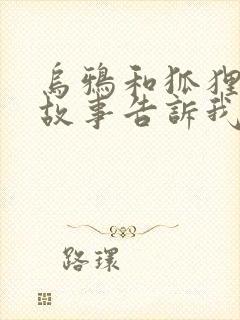 烏鴉和狐狸
故事告訴我
路環